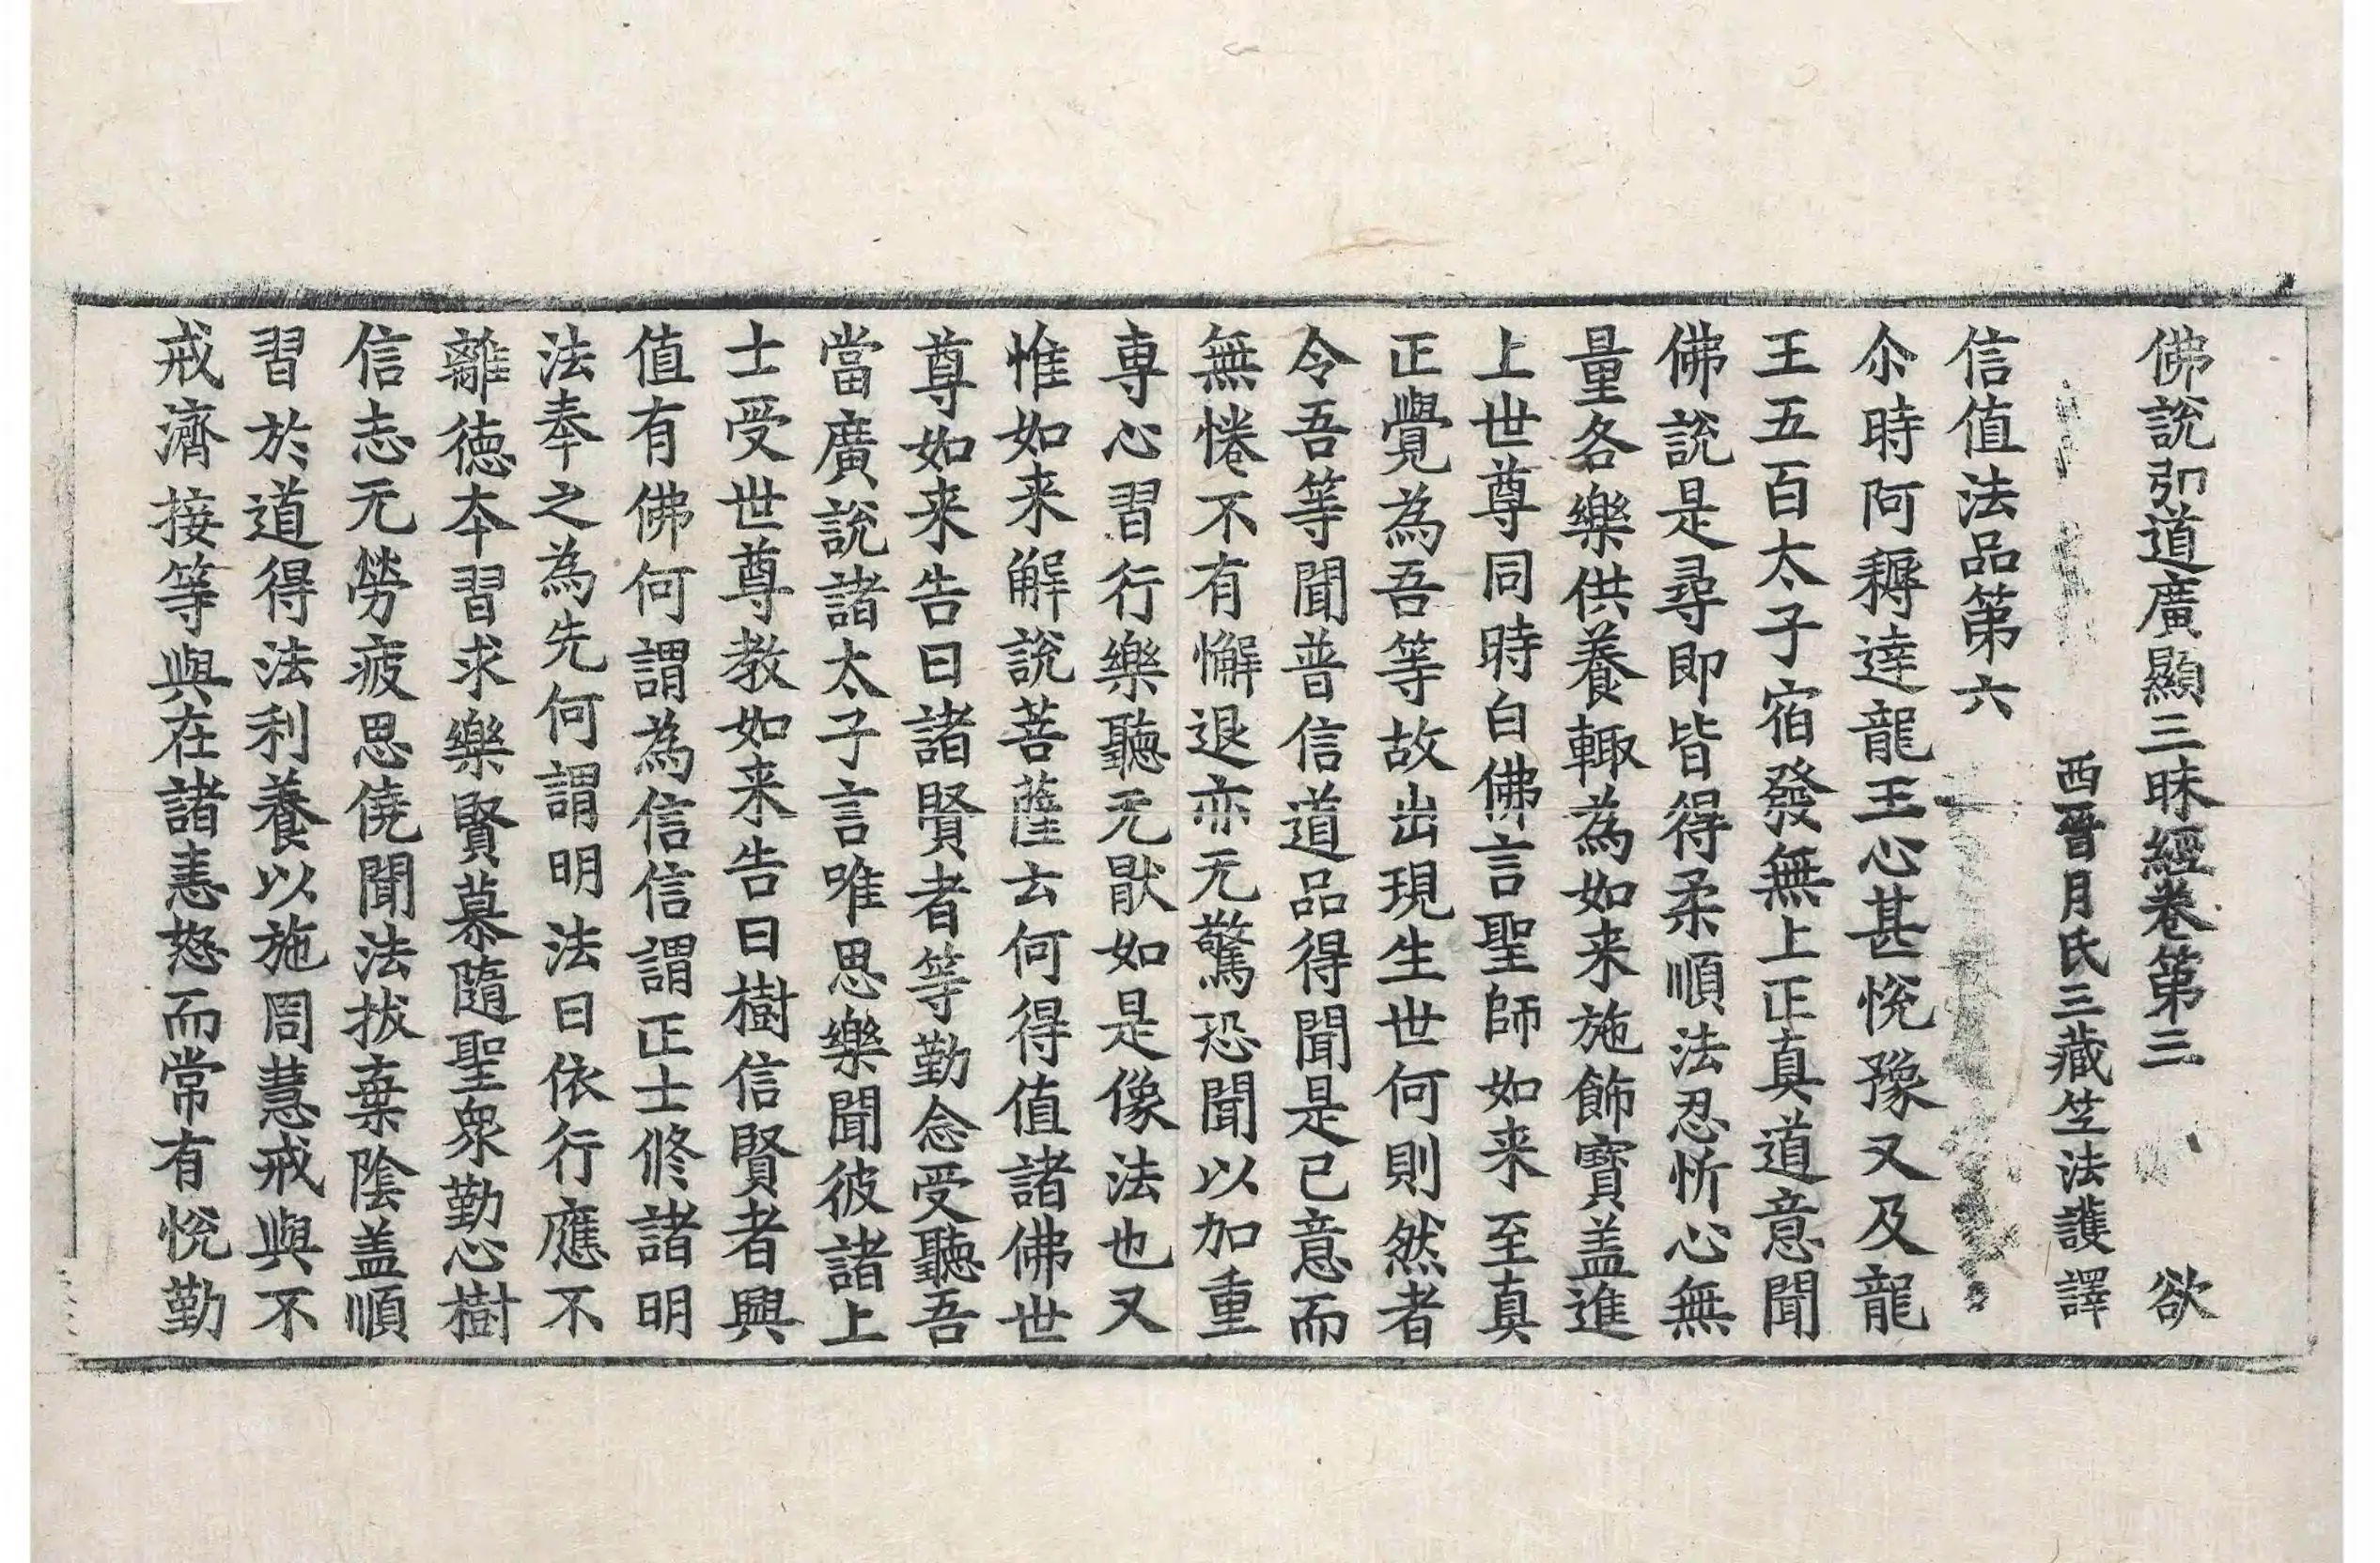 佛說弘道廣顯三昧經卷第三　欲
西晉月氏三藏竺法護譯
信值法品第六
尒時阿耨達龍王心甚悅豫又及龍
王五百太子宿發無上正真道意聞
佛說是尋即皆得柔順法忍忻心無
量各樂供養輙為如来施飾寶盖進
上世尊同時白佛言聖師如来至真
正覺為吾等故出現生世何則然者
令吾等聞普信道品得聞是已意而
無惓不有懈退亦无驚恐聞以加重
専心習行樂聽无猒如是像法也又
惟如来解說菩薩云何得值諸佛世
尊如来告曰諸賢者等勤念受聽吾
當廣說諸太子言唯思樂聞彼諸上
士受世尊教如来告曰樹信賢者興
值有佛何謂為信信謂正士修諸明
法奉之為先何謂明法曰依行應不
離德夲習求樂賢慕隨聖衆勤心樹
信志无勞疲思僥聞法拔棄陰盖順
習於道得法利養以施周慧戒與不
戒濟接等與在諸恚怒而常有悅勤